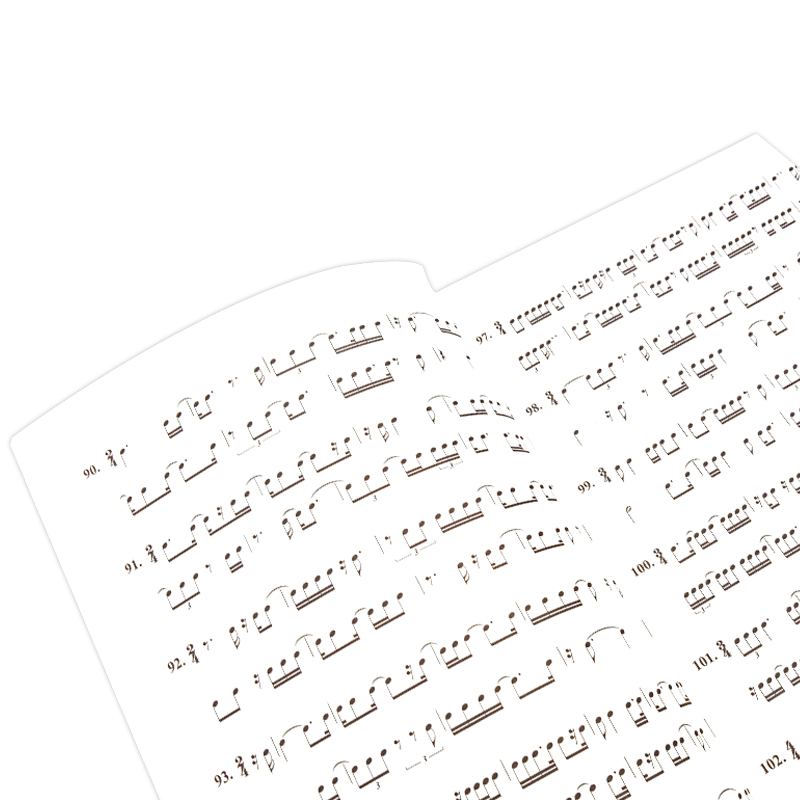 90. 2/4
91. 2/4
92. 2/4
93. 2/4
97. 2/4
98. 2/4
99. 2/4
100. 2/4
101. 2/4
102. 4